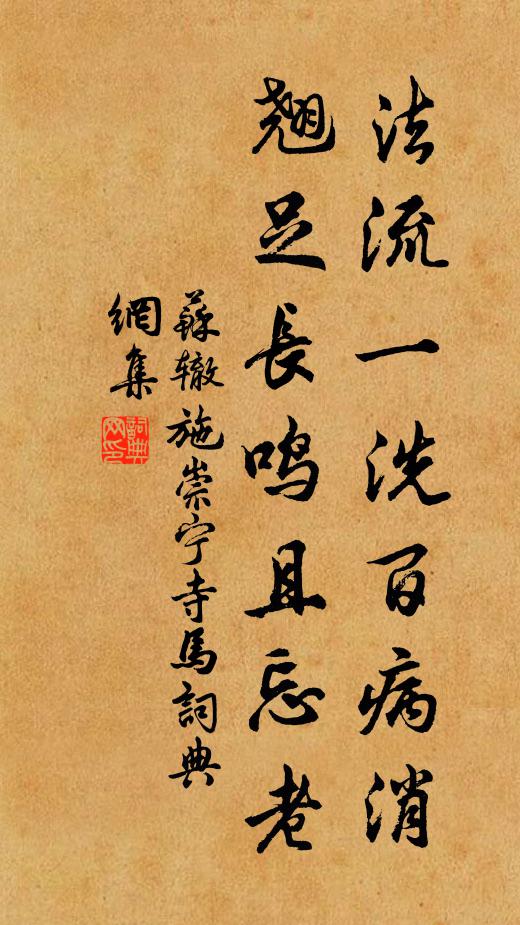 法流一洗百病消
翘足長鳴且忘老
蘇辙施崇宁寺馬詞典
網集
詞典
网印